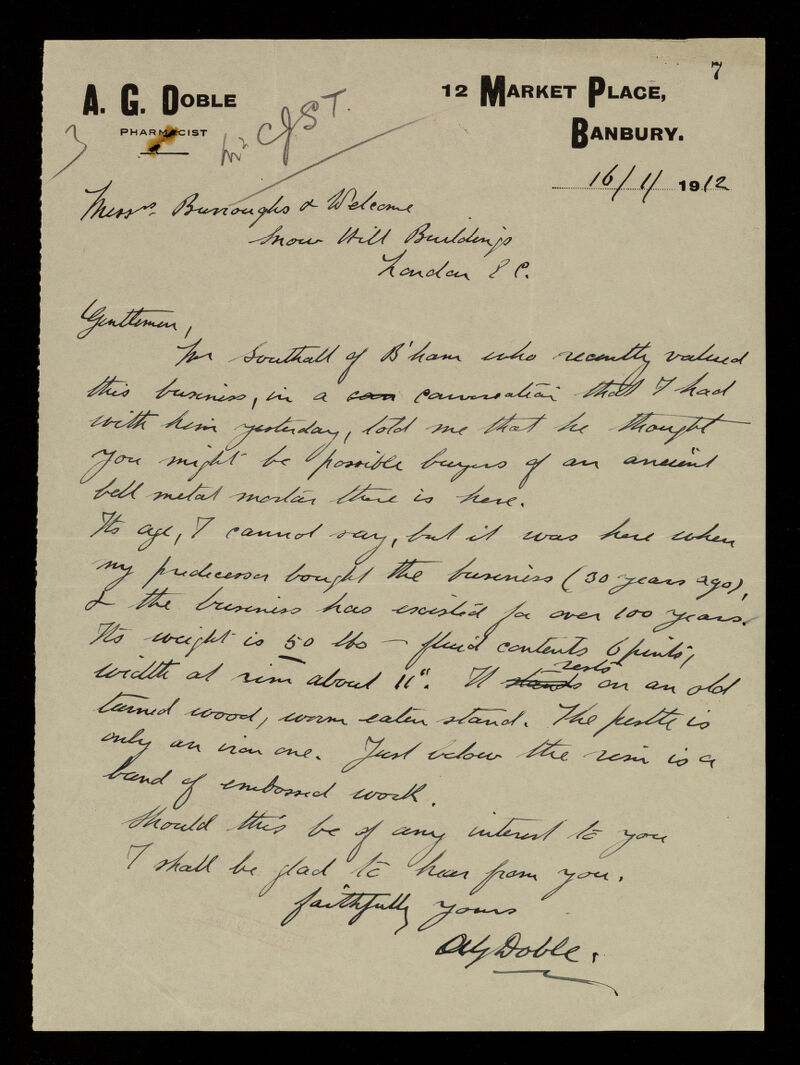 7
A. G. DOBLE
PHARMACIST
12 MARKET PLACE,
BANBURY.
Mr CJST.
16/1/1912
Messrs. Burroughs & Welcome
Snow Hill Buildings
London E C.
Gentlemen,
Mr Southall of B'ham who recently valued
this business, in a con conversation that I had
with him yesterday, told me that he thought
you might be possible buyers of an ancient
bell metal mortar there is here.
Its age, I cannot say, but it was here when
my predecessor bought the business (30 years ago),
& the business has existed for over 100 years.
Its weight is 50 lbs – fluid contents 6 pints,
width at rim about 11". It stands rests on an old
turned wood, worm eaten stand. The pestle is
only an iron one. Just below the rim is a
band of embossed work.
Should this be of any interest to you
I shall be glad to hear from you.
faithfully yours
AG Doble.